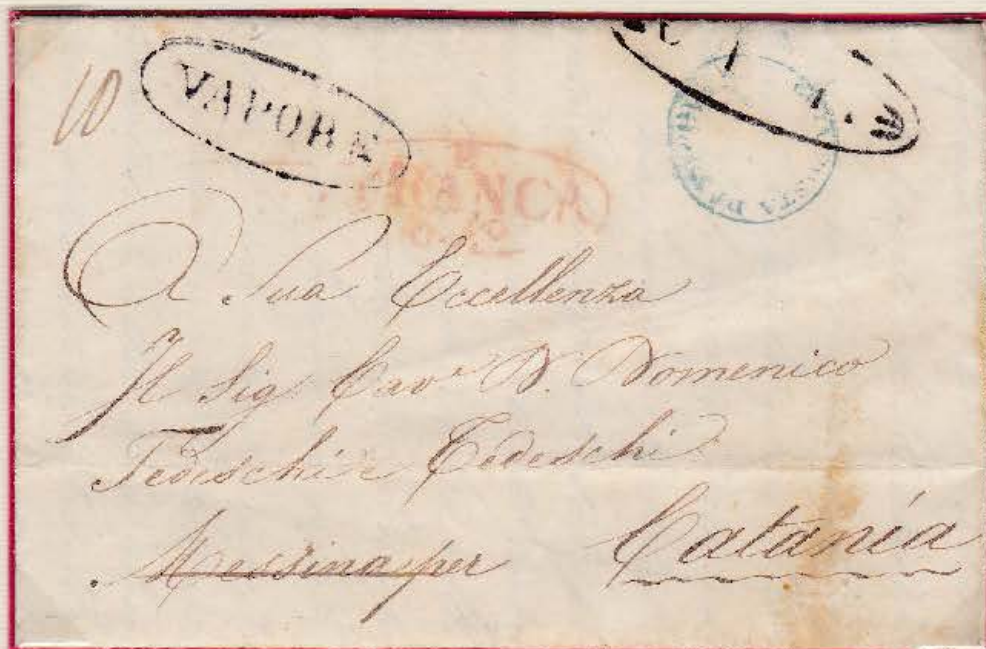 10
VAPORE
FRANCA
A Sua Eccellenza
Il Sig. Cavr D. Domenico
Tedeschi e Tedeschi
Messina per Catania